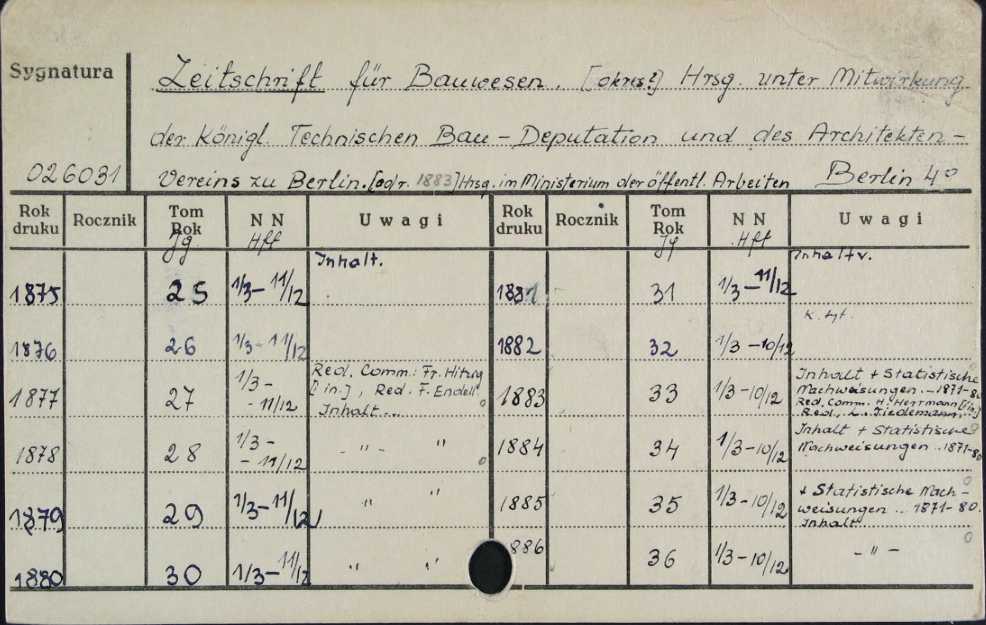 Sygnatura
Zeitschrift für Bauwesen. [okres?] Hrsg. unter Mitwirkung
der Königl. Technischen Bau-Deputation und des Architekten-
026031 Vereins zu Berlin. [od r. 1883] Hrsg. im Ministerium der öffentl. Arbeiten Berlin 4°
Rok druku Rocznik Tom Rok Jg N N Hft U w a g i Rok druku Rocznik Tom Rok Jg N N Hft U w a g i
1875 25 1/3-11/12 Inhalt. 1881 31 1/3-11/12 Inhaltv.
1876 26 1/3-11/12 1882 32 1/3-10/12
1877 27 1/3-
-11/12 Red. Comm: Fr. Hitzig
[in.], Red. F. Endell
Inhalt... 1883 33 1/3-10/12 Inhalt + Statistische
Nachweisungen..-1871-80
Red. Comm. H. Herrmann [in.]
Red., L. Tiedemann,
1878 28 1/3-
-11/12 - " - " 1884 34 1/3-10/12 Inhalt + Statistische
Nachweisungen..1871-80
1879 29 1/3-11/12 " " 1885 35 1/3-10/12 + Statistische Nach-
weisungen .. 1871-80.
Inhalt
1880 30 1/3-11/12 " " 886 36 1/3-10/12 - " -